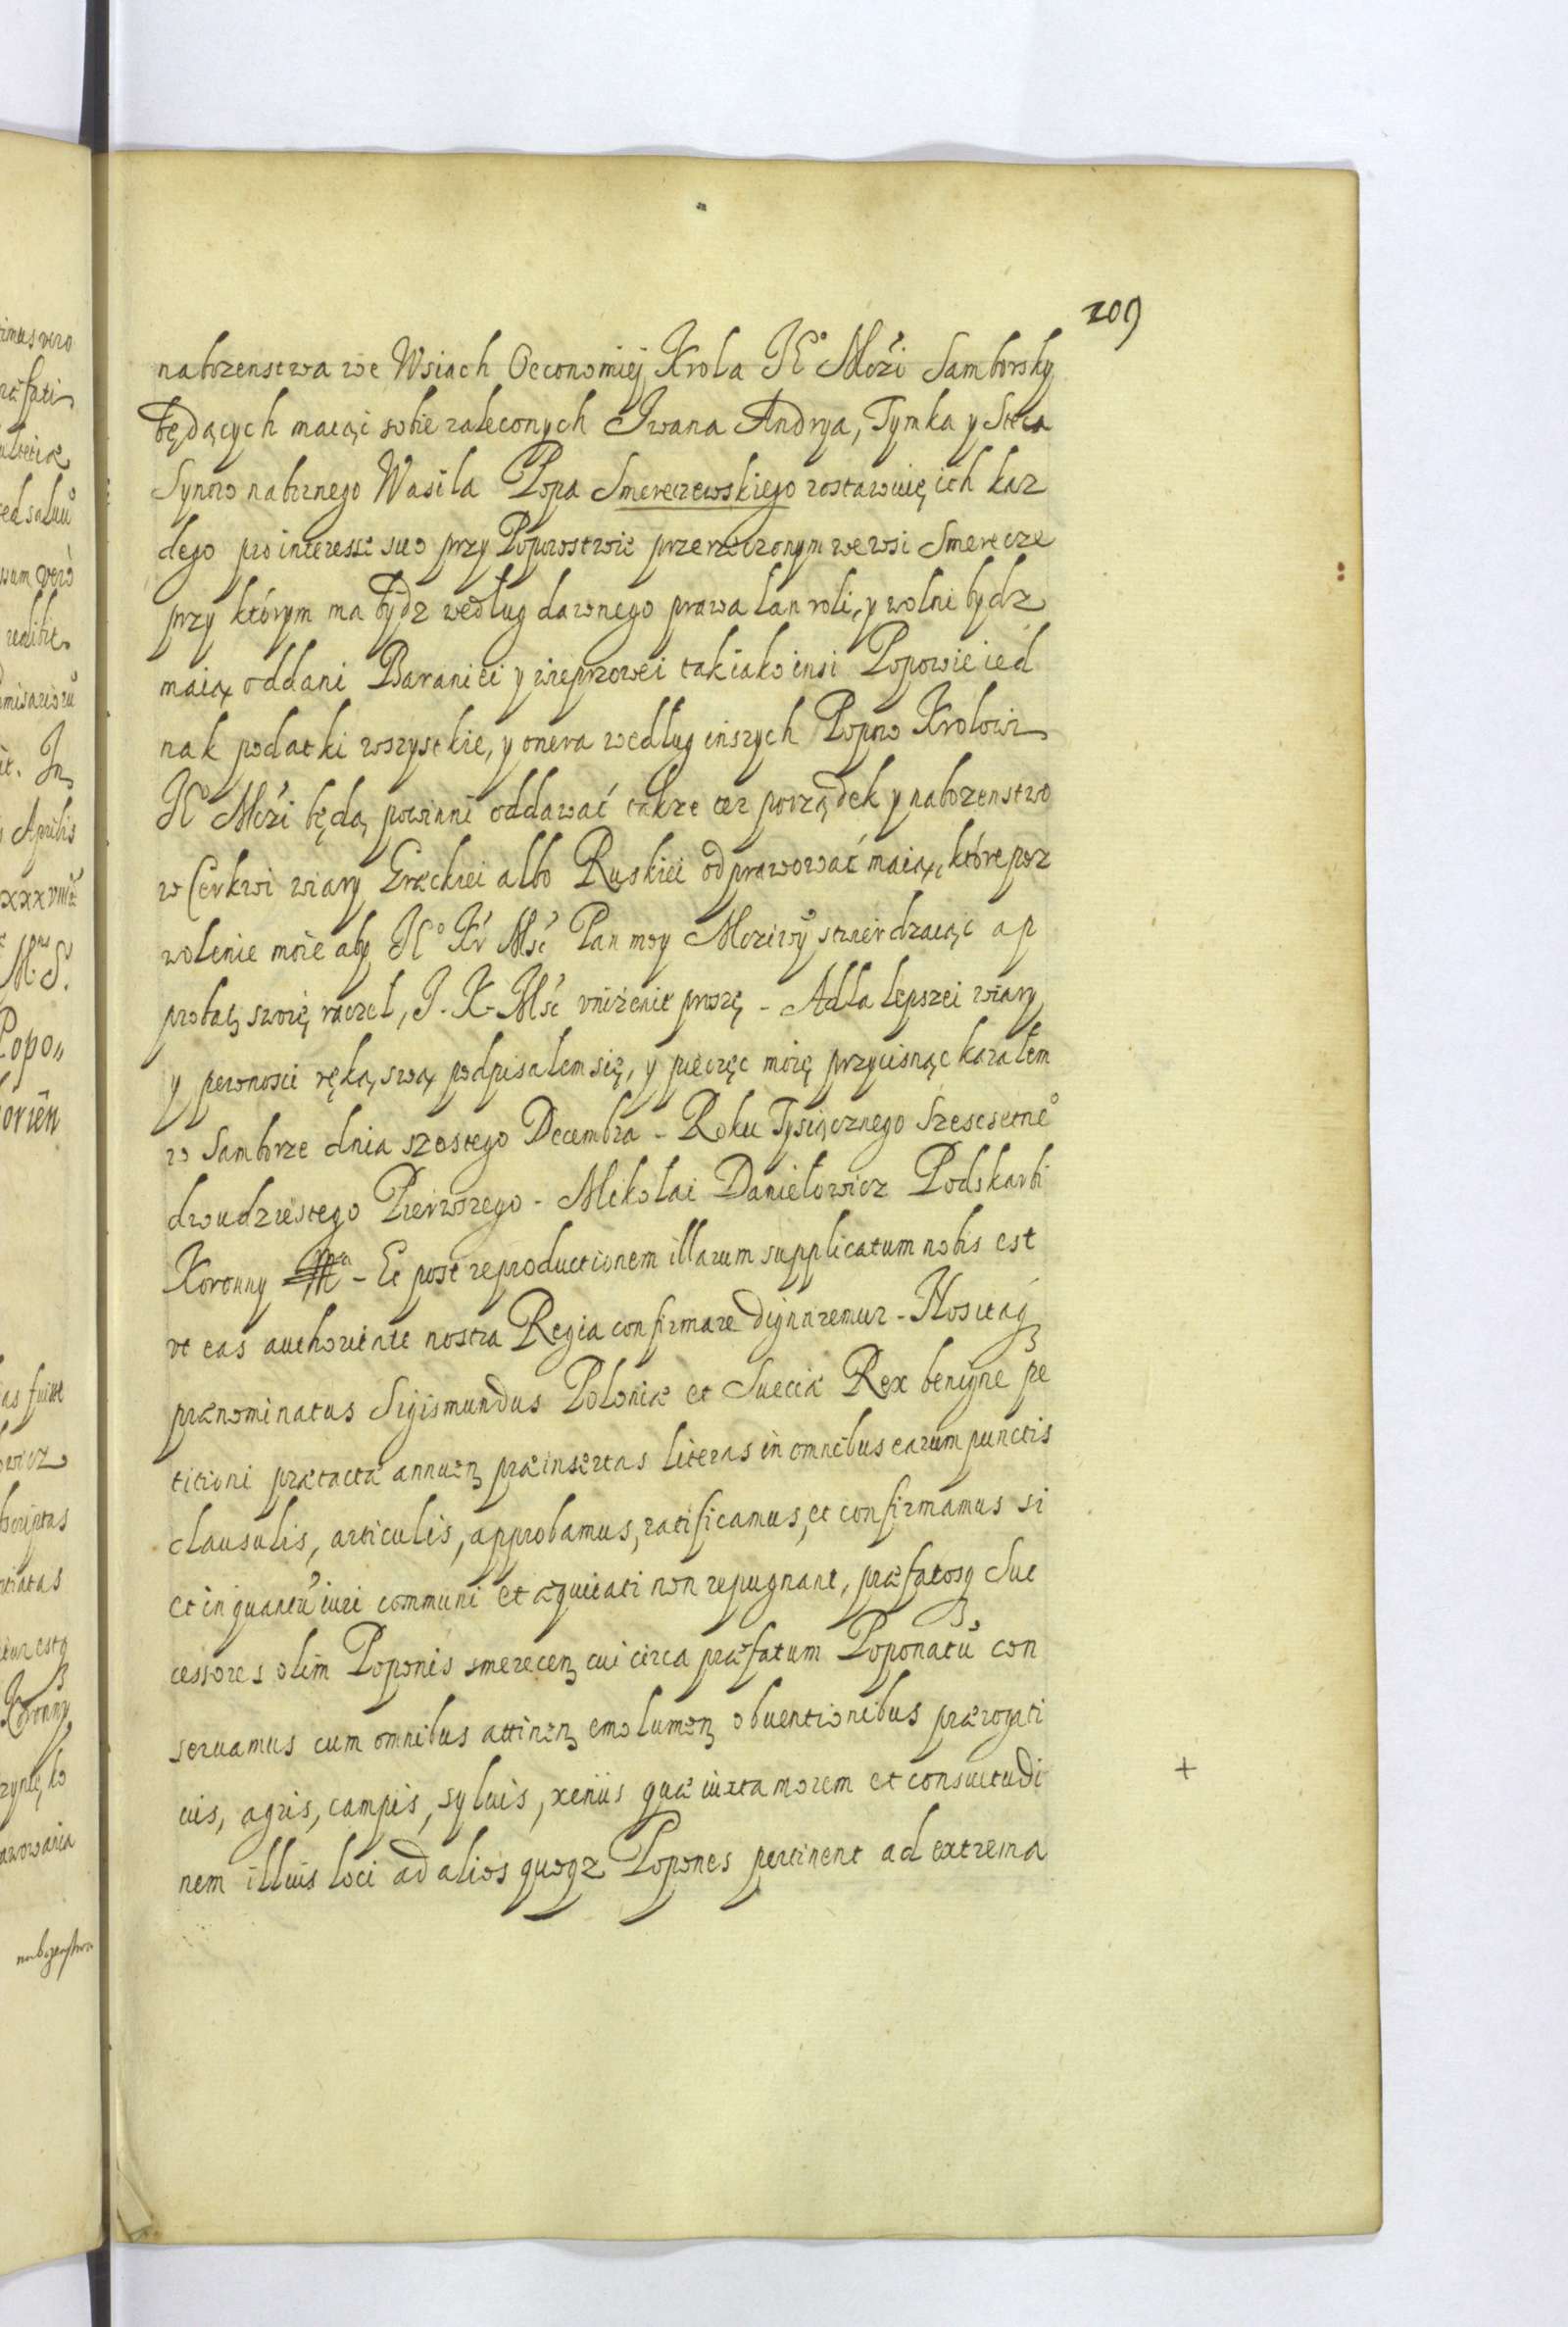 209
nabozenstwa we Wsiach Oeconomiej Krola Jᵒ Mczi Samborsky
będących maiąc sobie zaleconych Jwana Andrya, Tymka y Steca
Synow naboznego Wasila Popa Smereczewskiego zostawuię ich kaz
dego pro interesse suo przy Popowstwie przerzeczonym we wsi Smerecze
przy którym ma bydz według dawnego prawa łan roli, y wolni bydz
maią oddani Baraniei y wieprzowei tak iako insi Popowie ied
nak podatki wszystkie, y onera według inszych Popow Krolowi
Jᵒ Mczi będą powinni oddawać także też porządek y nabozenstwo
w Cerkwi wiary Græckiei albo Ruskiei odprawować maią, które poz
wolenie moie aby Jᵒ Kr Mść Pan moy Mcziwy stwierdzaiąc ap
probatę swoię raczel, J. K. Mść vnizenie proszę - A dla lepszei wiary
y pewnosci ręką swą podpisalem się, y pieczęc moię przycisnąc kazałem
w Samborze dnia szostego Decembra - Roku Tysiącznego Szescsetneᵒ
dwudziestego Pierwszego - Mikolai Daniełowicz Podskarbi
Koronny - Et post reproductionem illarum supplicatum nobis est
vt eas authoritate nostra Regia confirmare dignaremur - Nos itaq
prænominatus Sigismundus Poloniæ et Sueciæ Rex benigne pe
titioni prætactæ annuenꝫ præinsertas literas in omnibus earum punctis
clausulis, articulis, approbamus, ratificamus, et confirmamus si
et in quantũ iuri communi et æquitati non repugnant, præfatosq Suc
cessores olim Poponis smerecenꝫ cui circa præfatum Poponatũ con
seruamus cum omnibus attinenꝫ emolumenꝫ obuentionibus prærogati
uis, agris, campis, syluis, xeniis quæ iuxta morem et consuetudi
nem illius loci ad alios quoqz Popones pertinent ad extrema
+